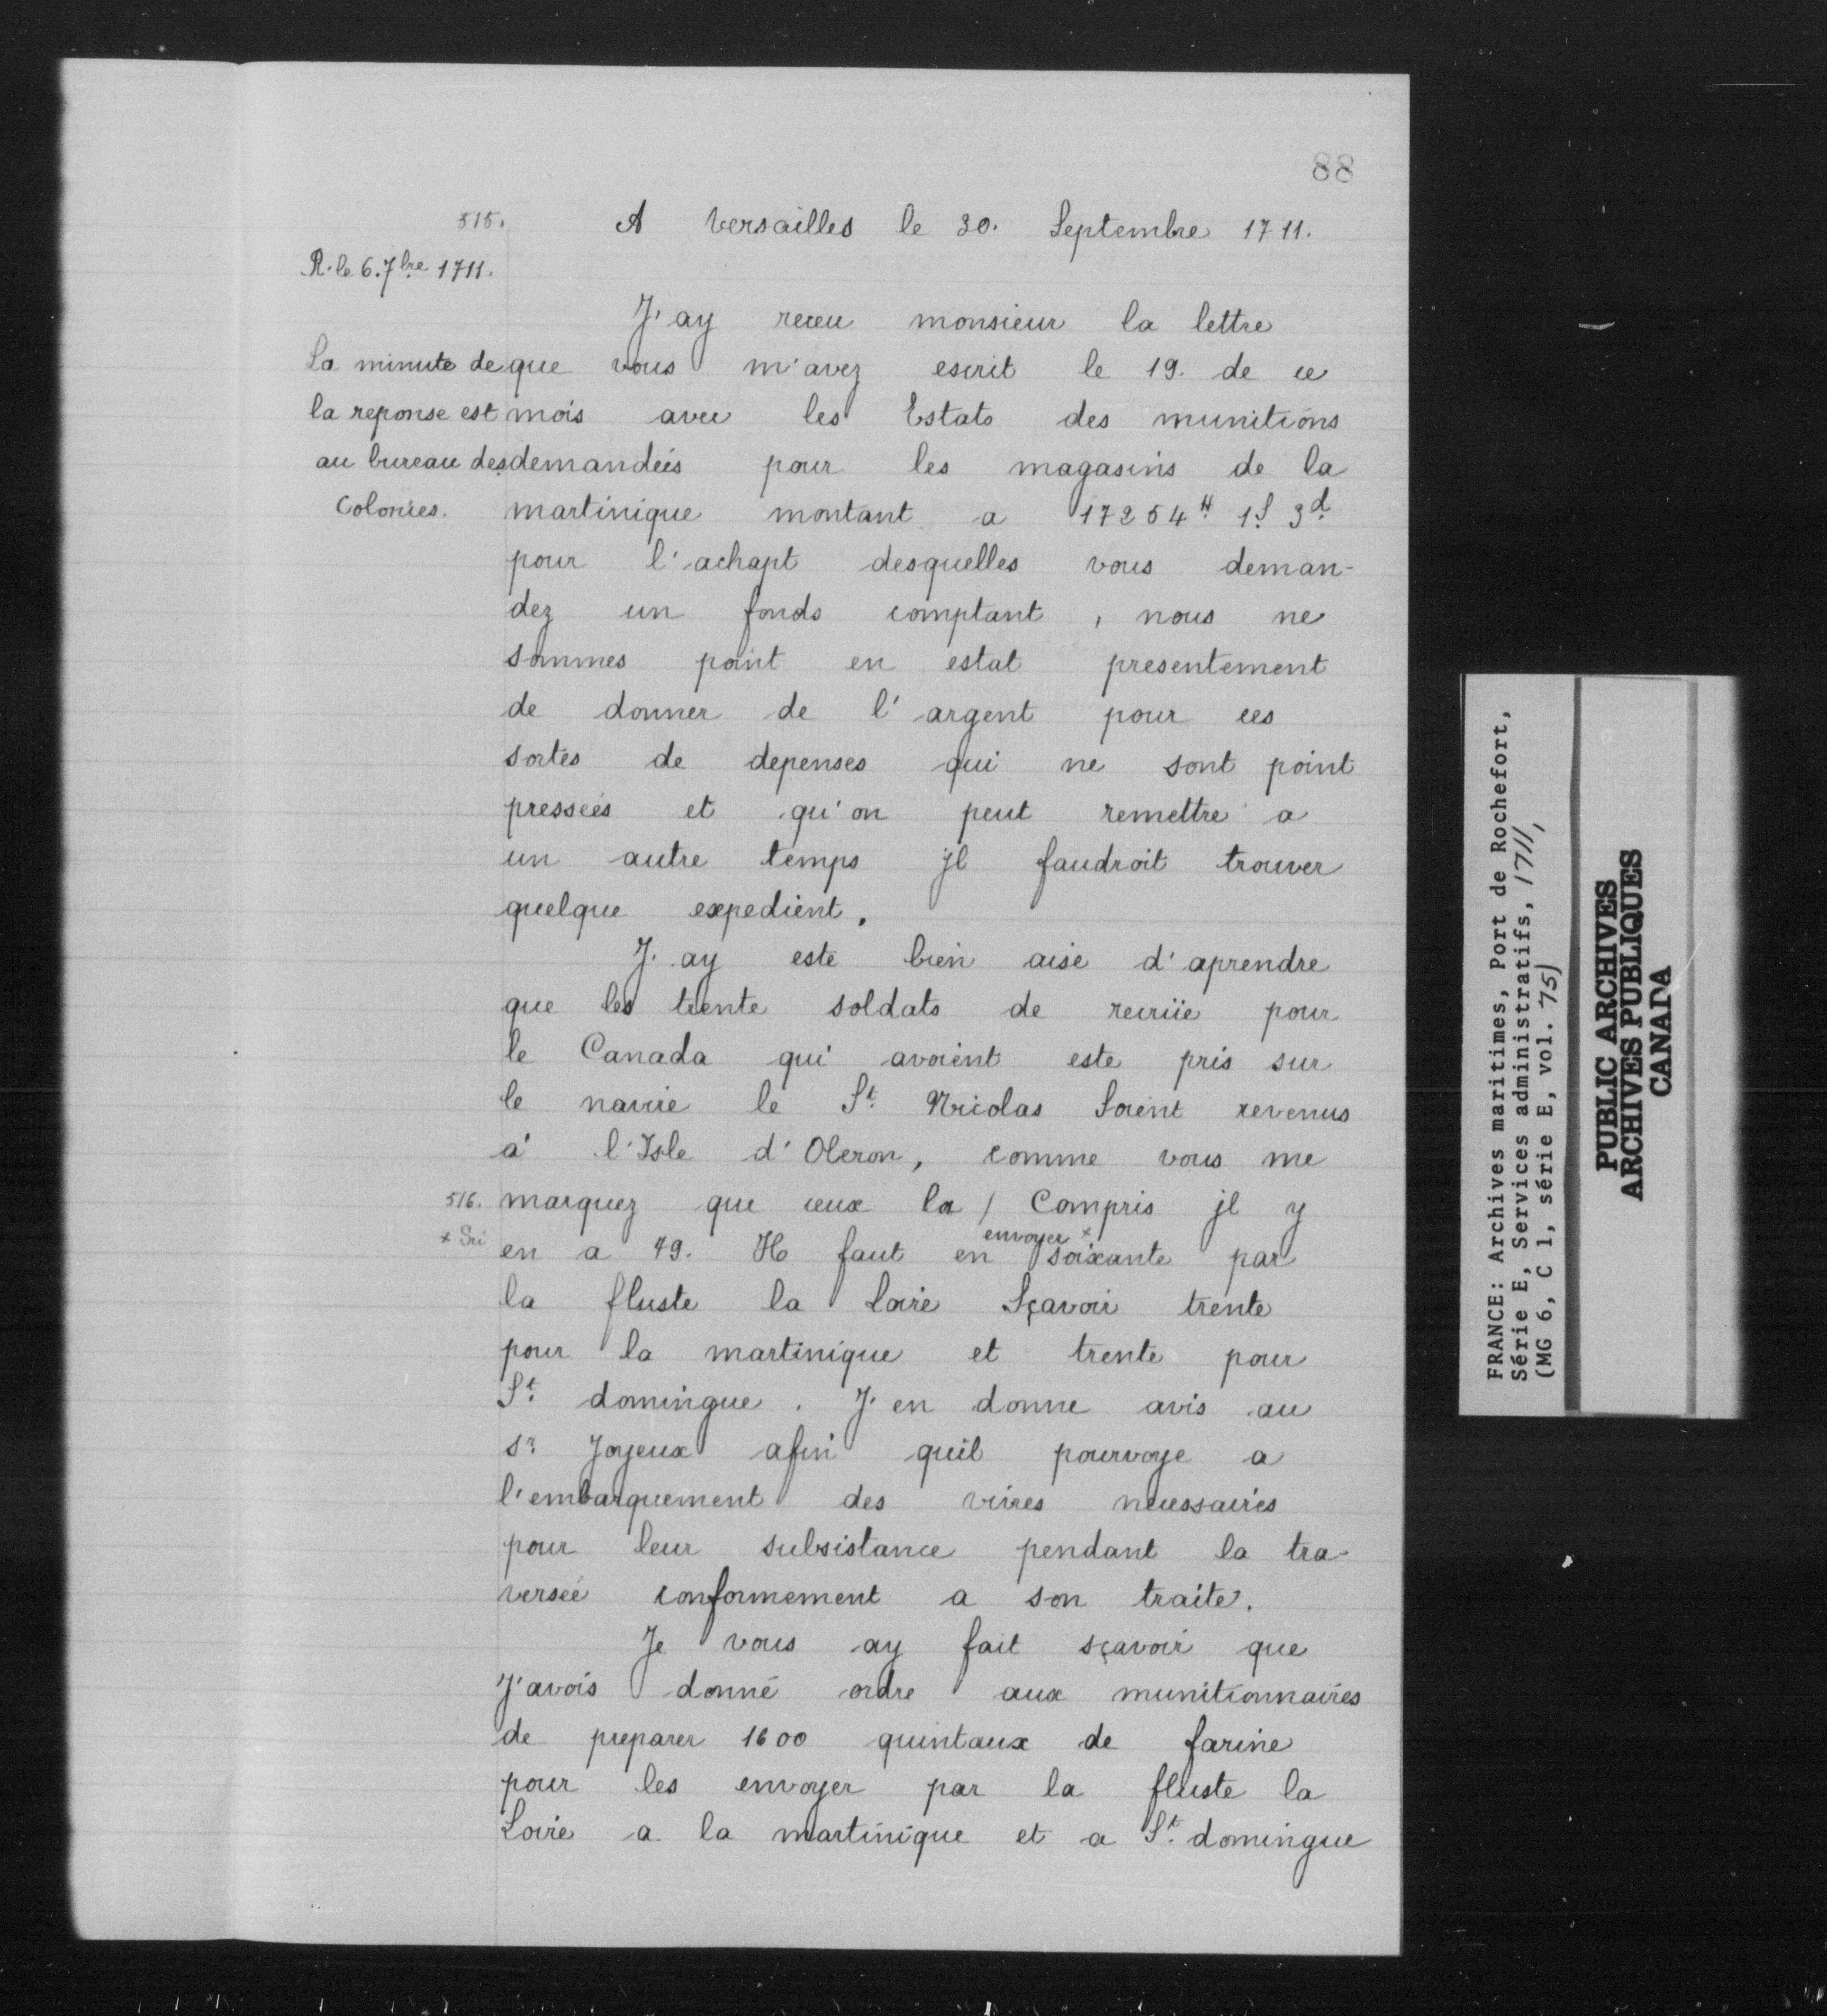 88
515.
A Versailles le 30. Septembre 1711.
R. le 6. 7bre 1711.
J'ay receu monsieur la lettre
La minute de
la reponse est
au bureau des
Colonies.
que vous m'avez escrit le 19. de ce
mois avec les Estats des munitions
demandées pour les magasins de la
martinique montant a 17254# 1s 3d
pour l'achapt desquelles vous deman-
dez un fonds comptant, nous ne
sommes point en estat presentement
de donner de l'argent pour ces
sortes de depenses qui ne sont point
pressées et qu'on peut remettre a
un autre temps jl faudroit trouver
quelque expedient.
J'ay este bien aise d'aprendre
que les trente soldats de recrüe pour
le Canada qui avoient este pris sur
le navire le St. Nicolas Soient revenus
a' l'Isle d'Oleron, comme vous me
516.
marquez que ceux la / Compris jl y
+ Sic
en a 49. Il faut en envoyer + soixante par
la fluste la Loire Sçavoir trente
pour la martinique et trente pour
St. domingue. J'en donne avis au
sr. Joyeux afin quil pourvoye a
l'embarquement des vivres necessaires
pour leur subsistance pendant la tra-
versée conformement a son traité.
Je vous ay fait sçavoir que
J'avois donné ordre aux munitionnaires
de preparer 1600 quintaux de farine
pour les envoyer par la fluste la
Loire a la martinique et a St. domingue
FRANCE: Archives maritimes, Port de Rochefort,
Série E, Services administratifs, 1711,
(MG 6, C 1, série E, vol. 75)
PUBLIC ARCHIVES
ARCHIVES PUBLIQUES
CANADA